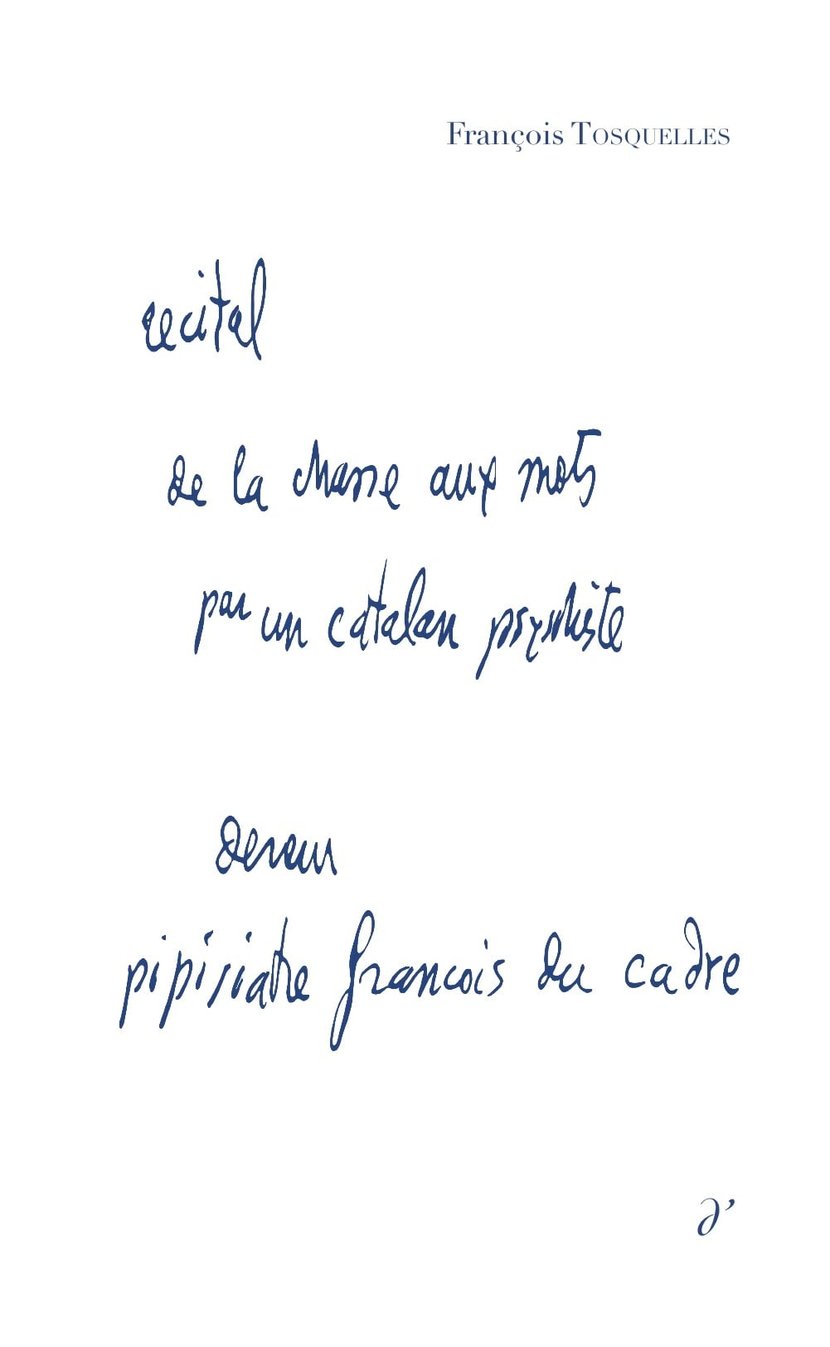 François TOSQUELLES
recital
de la chasse aux mots
par un catalan psychiste
devenu
pipisiatre francois du cadre
∂’